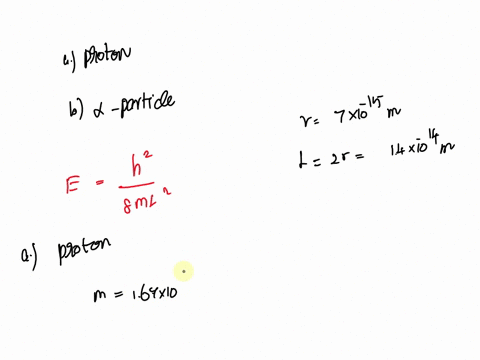 a.) proton
b) α-particle
r = 7×10^-15 m
L = 2r = 1.4×10^-14 m
E = h^2 / 8mL^2
a.) proton
m = 1.67×10